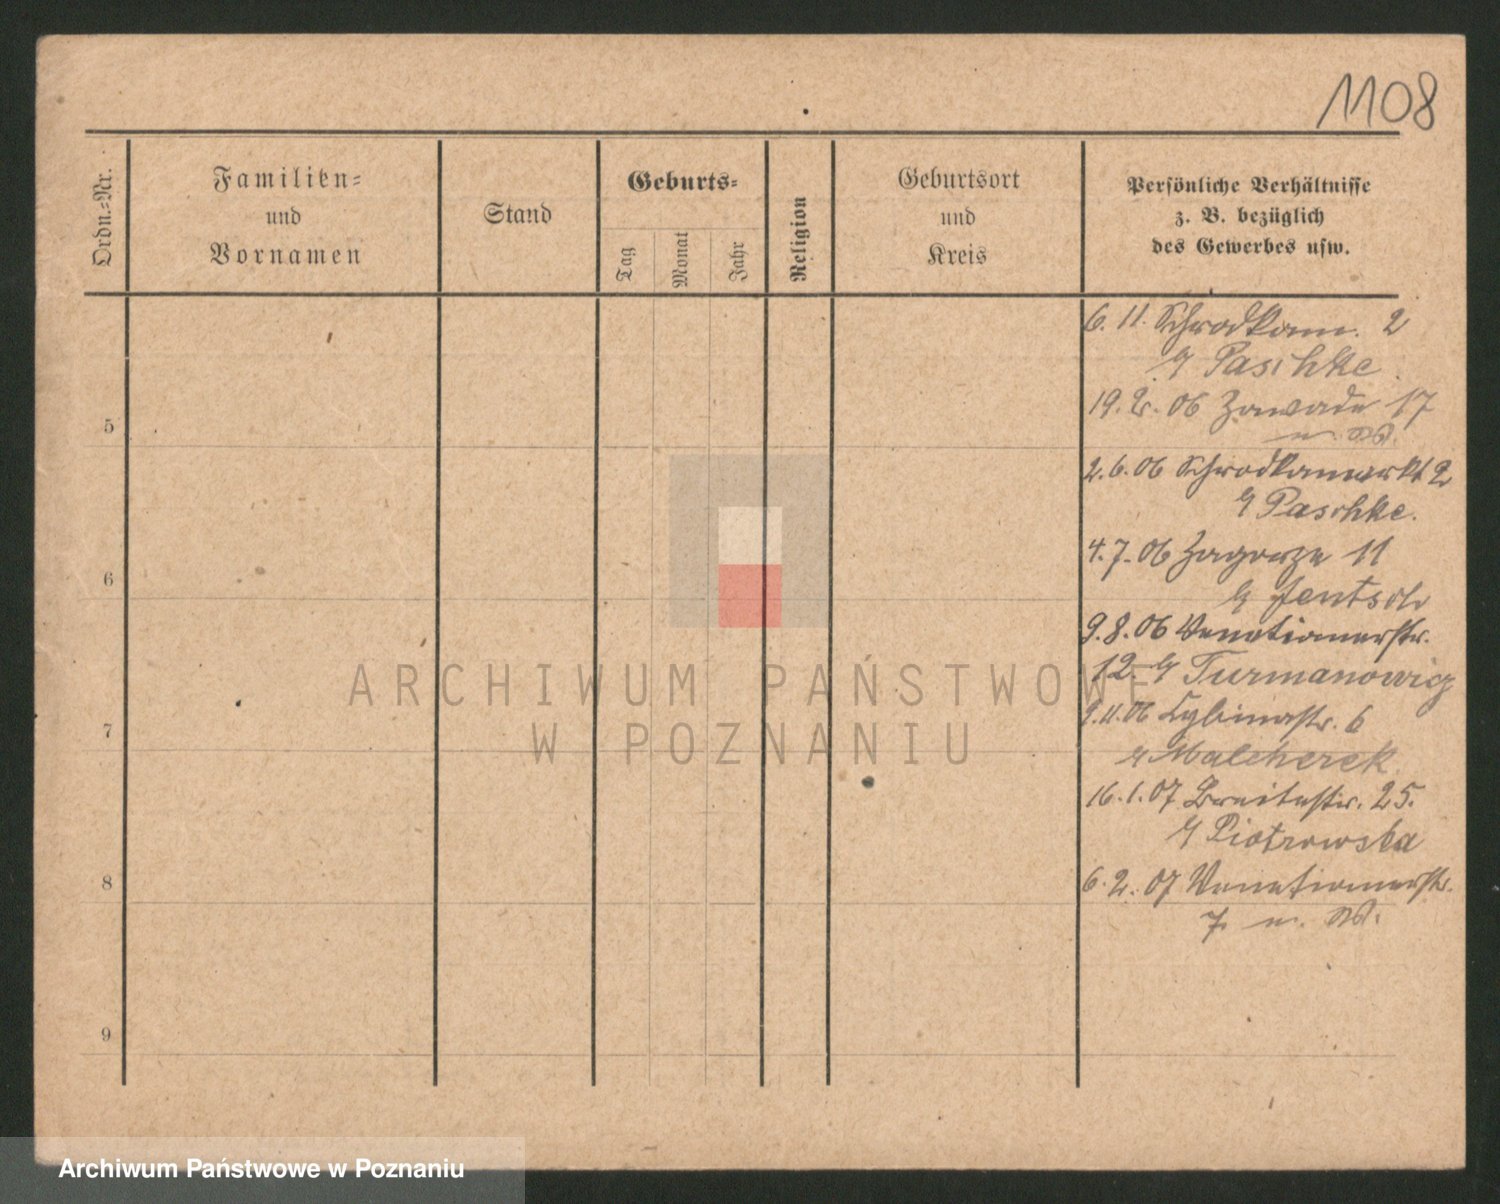 1108
Ordn.-Nr.
Familien-
und
Vornamen
Stand
Geburts-
Tag
Monat
Jahr
Religion
Geburtsort
und
Kreis
Persönliche Verhältnisse
z. B. bezüglich
des Gewerbes usw.
6. 11. Schrodkam. 2
b/ Paschke.
19. 2. 06 Zawade 17
5
2.6.06 Schrodkamarkt 2
b/ Paschke.
4.7.06 Zagorze 11
6
b/ Jentsch
9.8.06 Venetianerstr.
12. b/ Turmanowicz
ARCHIWUM PAŃSTWOWE
W POZNANIU
9.11.06 Cybinastr. 6
7
b/ Malcherek
16.1.07 Breitestr. 25.
b/ Piotrowska
8
6.2.07 Venetianerstr.
7
9
Archiwum Państwowe w Poznaniu